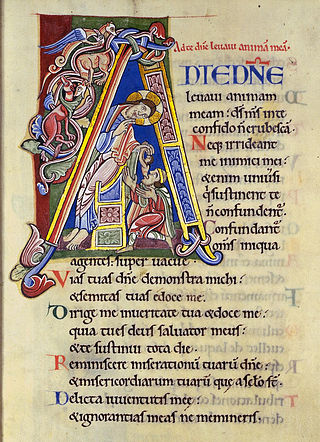 Ad te dñe levavi animã meã.
AD TE DÑE
levavi animam
meam: dš mš in te
confido ñ erubescã.
Neq; irrideant
me inimici mei:
& enim univsi
q̃ sustinent te
ñ confundent̃.
Confundant̃
om̃s iniqua
agentes: super vacue.
Vias tuas dñe demonstra michi:
& semitas tuas edoce me.
Dirige me in veritate tua & doce me:
quia tu es deus salvator meus:
& te sustinui tota die.
Reminiscere miserationũ tuarũ dñe:
& misericordiarum tuarũ que a sclo st̃.
Delicta iuventutis mee:
& ignorantias meas ne memineris.